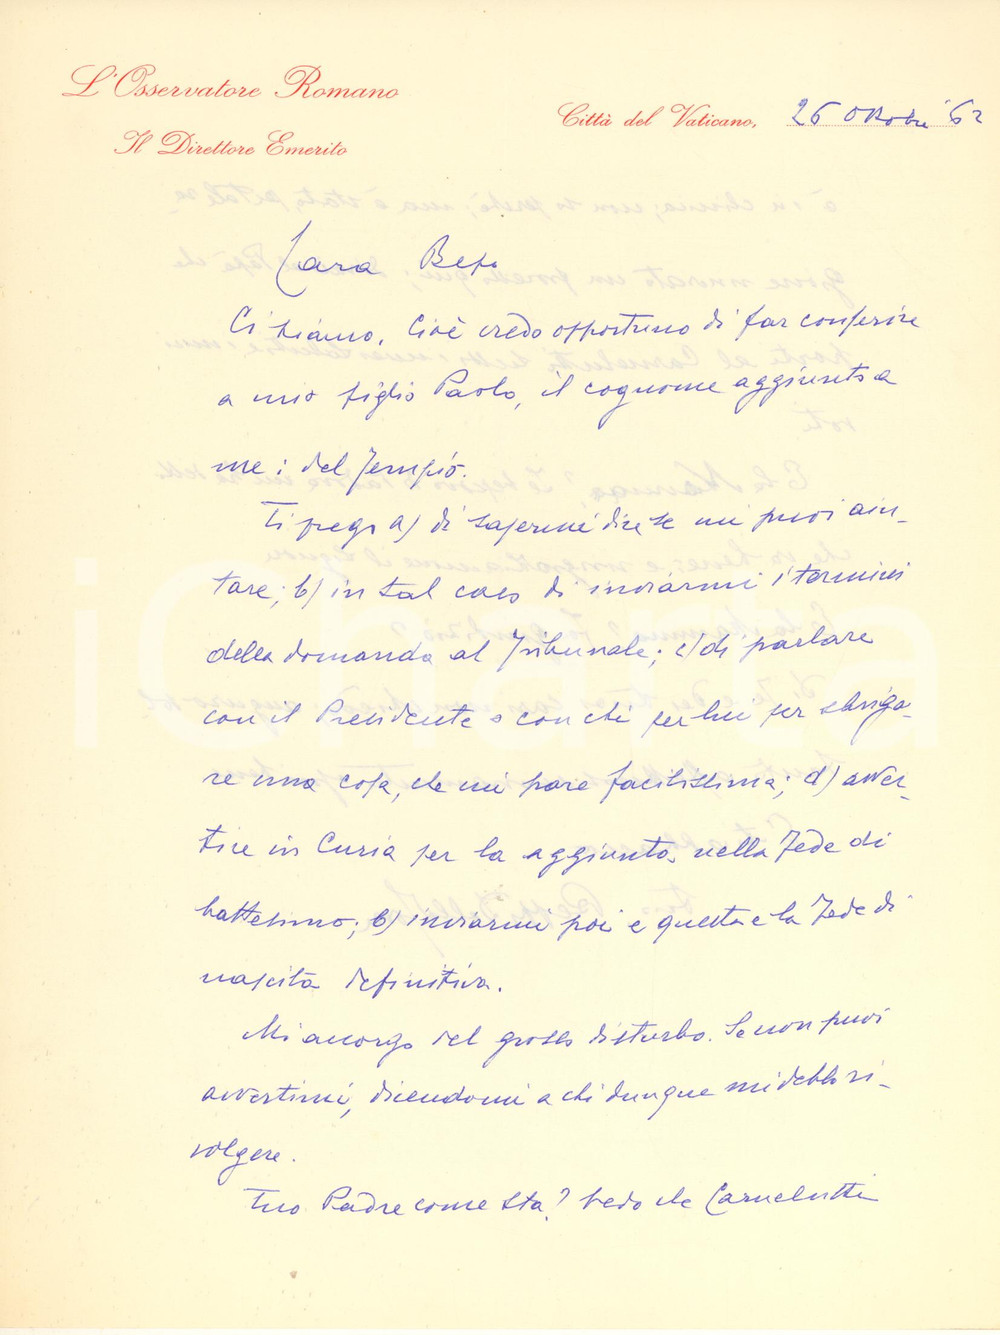 L'Osservatore Romano
Il Direttore Emerito
Città del Vaticano, 26 Ottobre '62
Cara Bepa
Ci siamo. Cioè credo opportuno di far conferire
a mio figlio Paolo, il cognome aggiunto a
me: del Tempio.
Ti prego a) di sapermi dire se mi puoi aiu-
tare; b) in tal caso di inviarmi i termini
della domanda al Tribunale; c) di parlare
con il Presidente o con chi per lui per sbriga-
re una cosa, che mi pare facilissima; d) avver-
tire in Curia per la aggiunta nella Fede di
battesimo; e) inviarmi poi e questa e la Fede di
nascita definitiva.
Mi accorgo del grosso disturbo. Se non puoi
avvertimi, dicendomi a chi dunque mi debbo ri-
volgere.
Tuo Padre come sta? Vedo che Carnelutti
iCharta